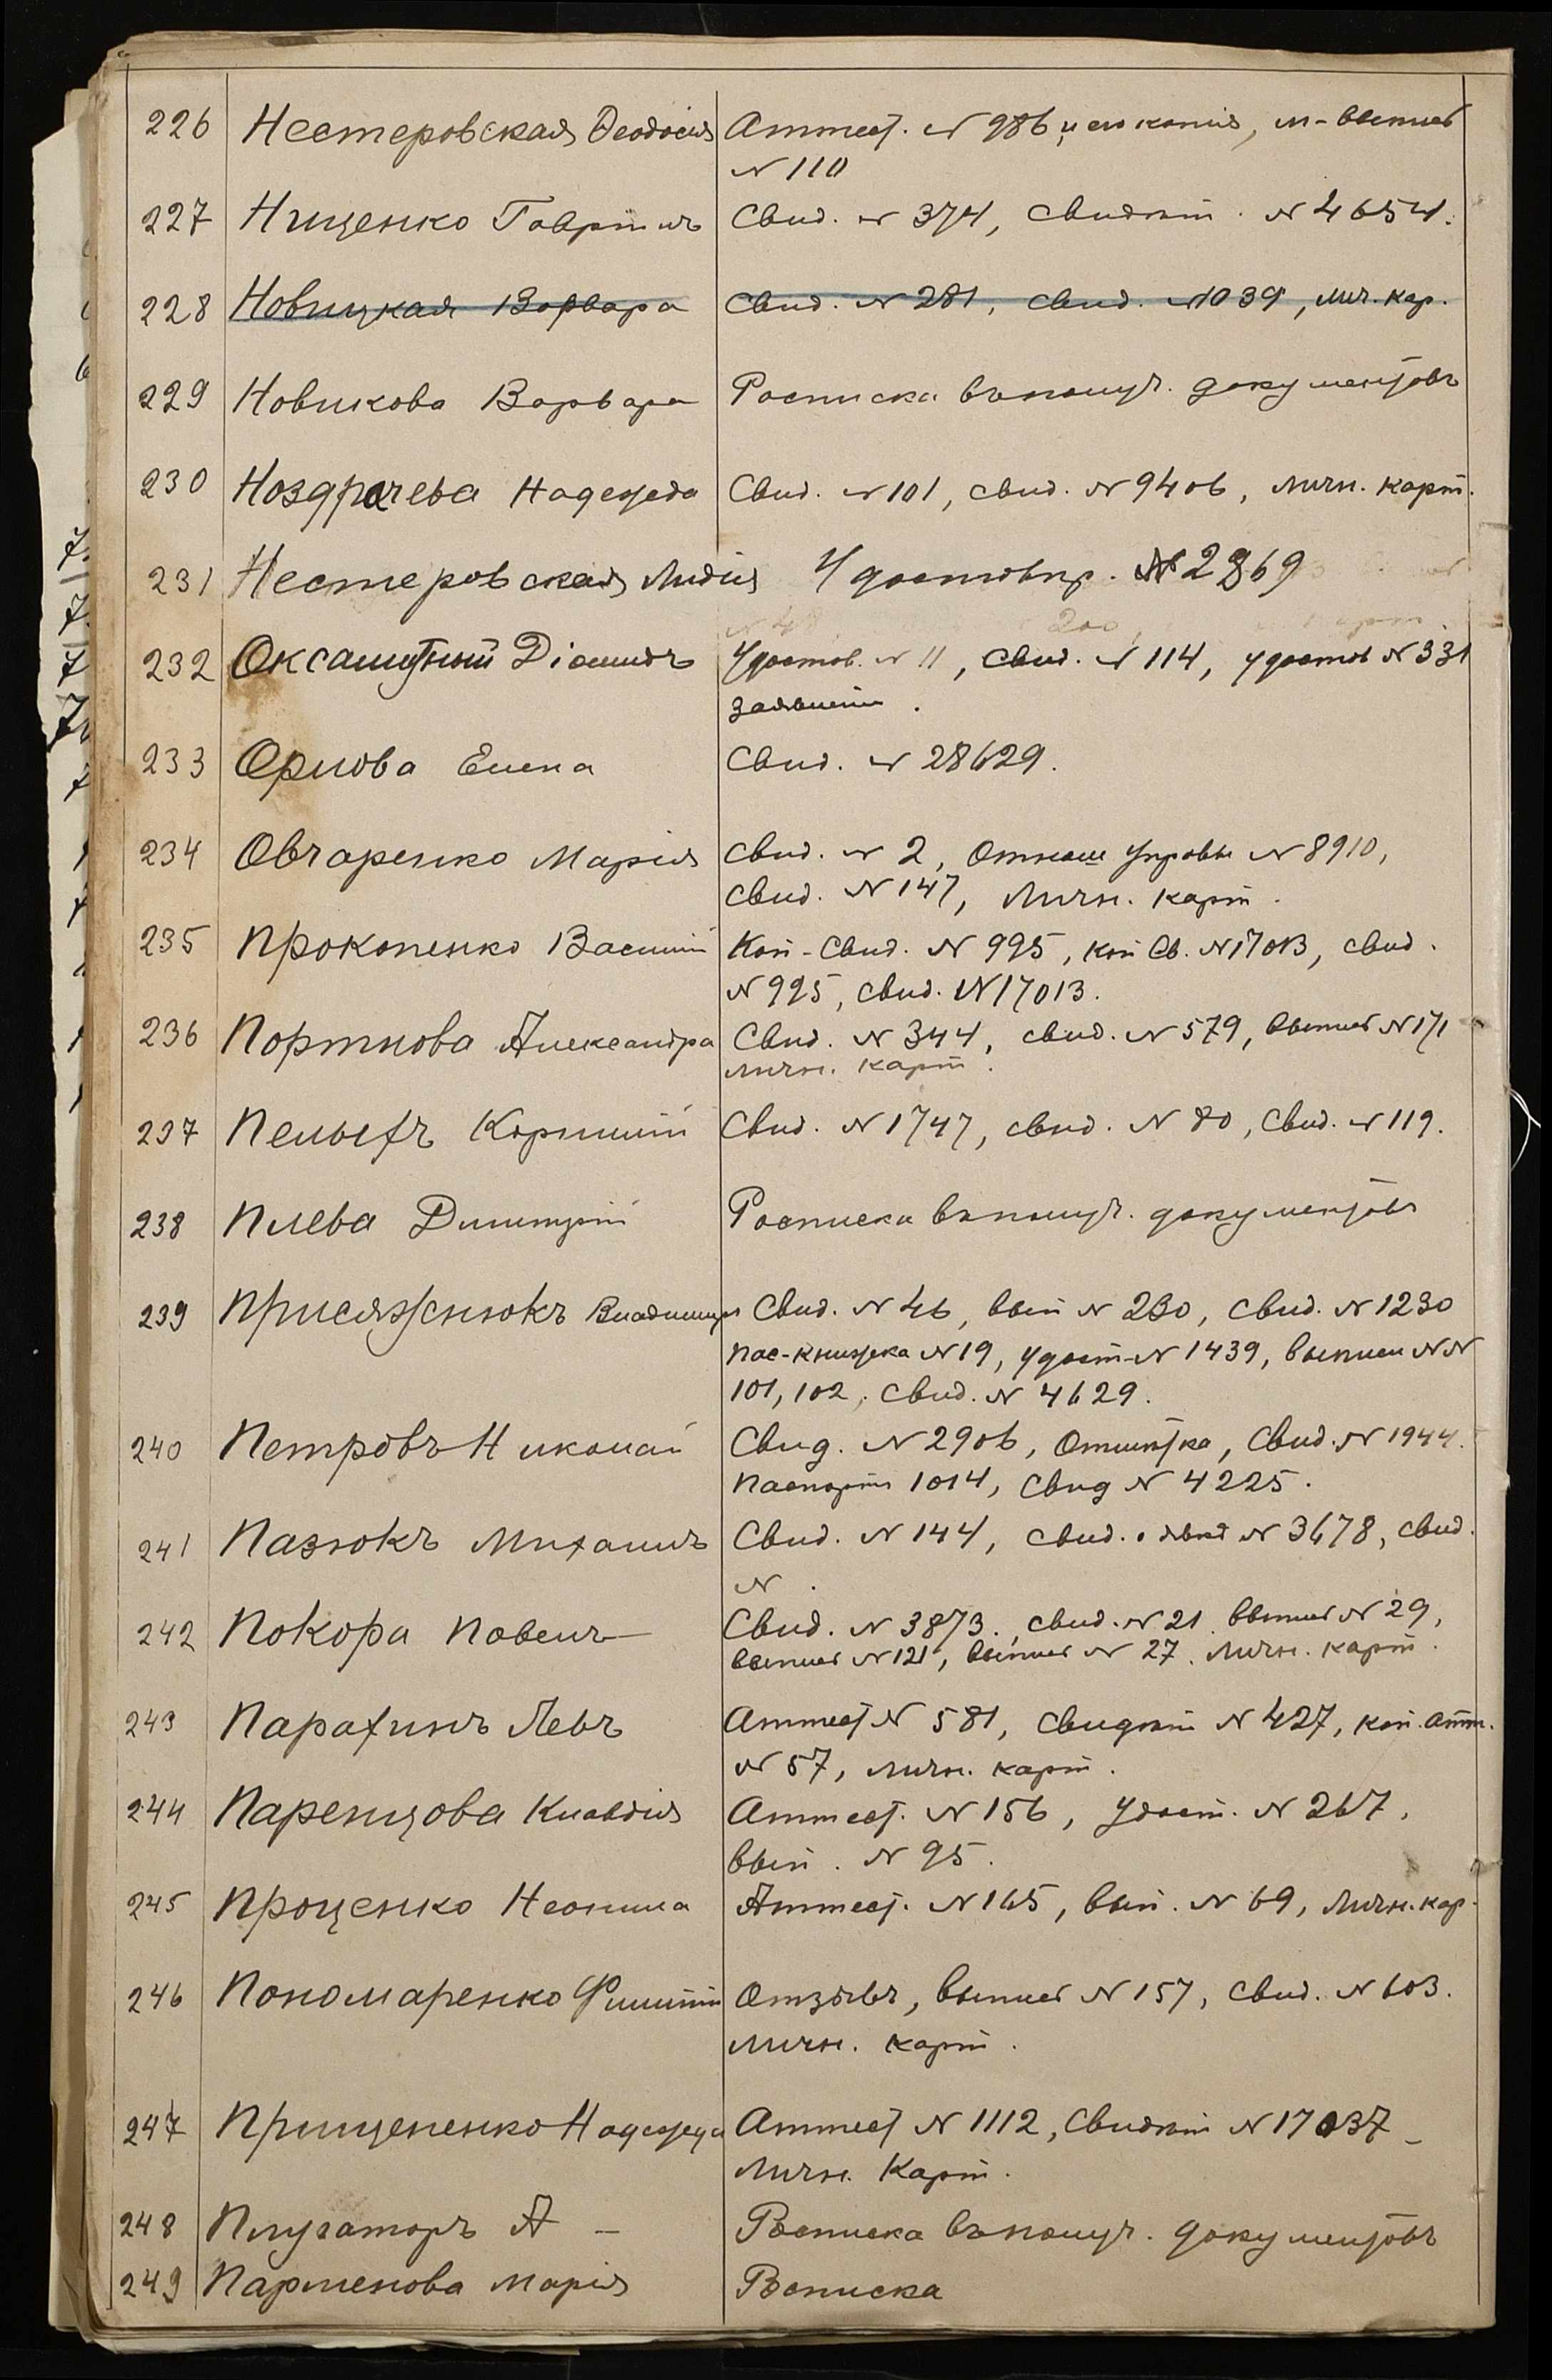 226 Нестеровская Ѳеодосія Аттест. № 986 и его копія, м-выпись
№ 110
227 Нищенко Гавріилъ Свид. № 374, свидѣт. № 4654.
228 Новицкая Варвара Свид. № 281, свид. № 1039, лич. кар.
229 Новикова Варвара Росписка въ получ. документовъ
230 Ноздрачева Надежда Свид. № 101, свид. № 9406, личн. карт.
231 Нестеровская Лидія Удостовѣр. № 2869
232 Оксамитный Діомидъ Удостов. № 11, Свид. № 114, удостов № 331
заявленіе.
233 Орлова Елена Свид. № 28629.
234 Овчаренко Марія Свид. № 2, Отнош Управы № 8910,
Свид. № 147, Личн. карт.
235 Прокопенко Василій Коп-Свид. № 995, коп Св. № 17013, свид.
№ 995, свид. № 17013.
236 Портнова Александра Свид. № 344, свид. № 579, выпись № 171
личн. карт.
237 Пелыхъ Корнилій Свид. № 1747, свид. № 80, Свид. № 119.
238 Плева Димитрій Росписка въ получ. документовъ
239 Присяжнюкъ Владимиръ Свид. № 46, вып № 230, Свид. № 1230
пас-книжка № 19, удост-№ 1439, выписи №№
101, 102, Свид. № 4629.
240 Петровъ Николай Свид. № 2906, Отмѣтка, Свид. № 1944.
Паспортъ 1014, Свид № 4225.
241 Пазюкъ Михаилъ Свид. № 144, свид. о явкѣ № 3678, свид.
№ .
242 Покора Павелъ Свид. № 3873., свид. № 21. выпись № 29,
выпись № 121, выпись № 27. Личн. карт.
243 Парахинъ Левъ Аттест № 581, Свидѣт № 427, коп. атт.
№ 57, личн. карт.
244 Паренцова Клавдія Аттест. № 156, Удост. № 267,
вып. № 95.
245 Проценко Неонила Аттест. № 165, вып. № 69, Личн. кар.
246 Пономаренко Филиппъ Отзывъ, выпись № 157, Свид. № 603.
личн. карт.
247 Прищепенко Надежда Аттест № 1112, Свидѣт № 17037
Личн. Карт.
248 Плугаторъ А – Росписка въ получ. документовъ
249 Парменова Марія Росписка